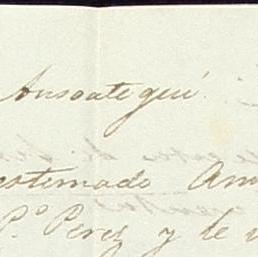 Ansoategui
estimado Am
P.º Perez y le